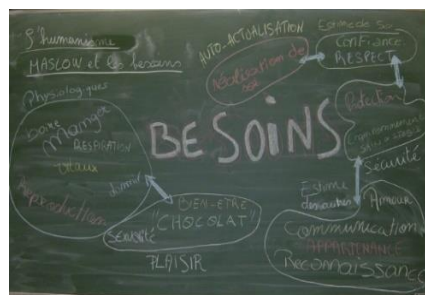 L'humanisme
MASLOW et les besoins
Physiologiques
Manger
RESPIRATION
Vitaux
Reproduction
dormir
BIEN-ETRE
"CHOCOLAT"
SEXUALITÉ
PLAISIR
BESOINS
AUTO-ACTUALISATION
réalisation de
soi
Estime de soi
CONFIANCE
RESPECT
Protection
Sécurité
Estime
des autres
Amour
Communication
APPARTENANCE
Reconnaissance